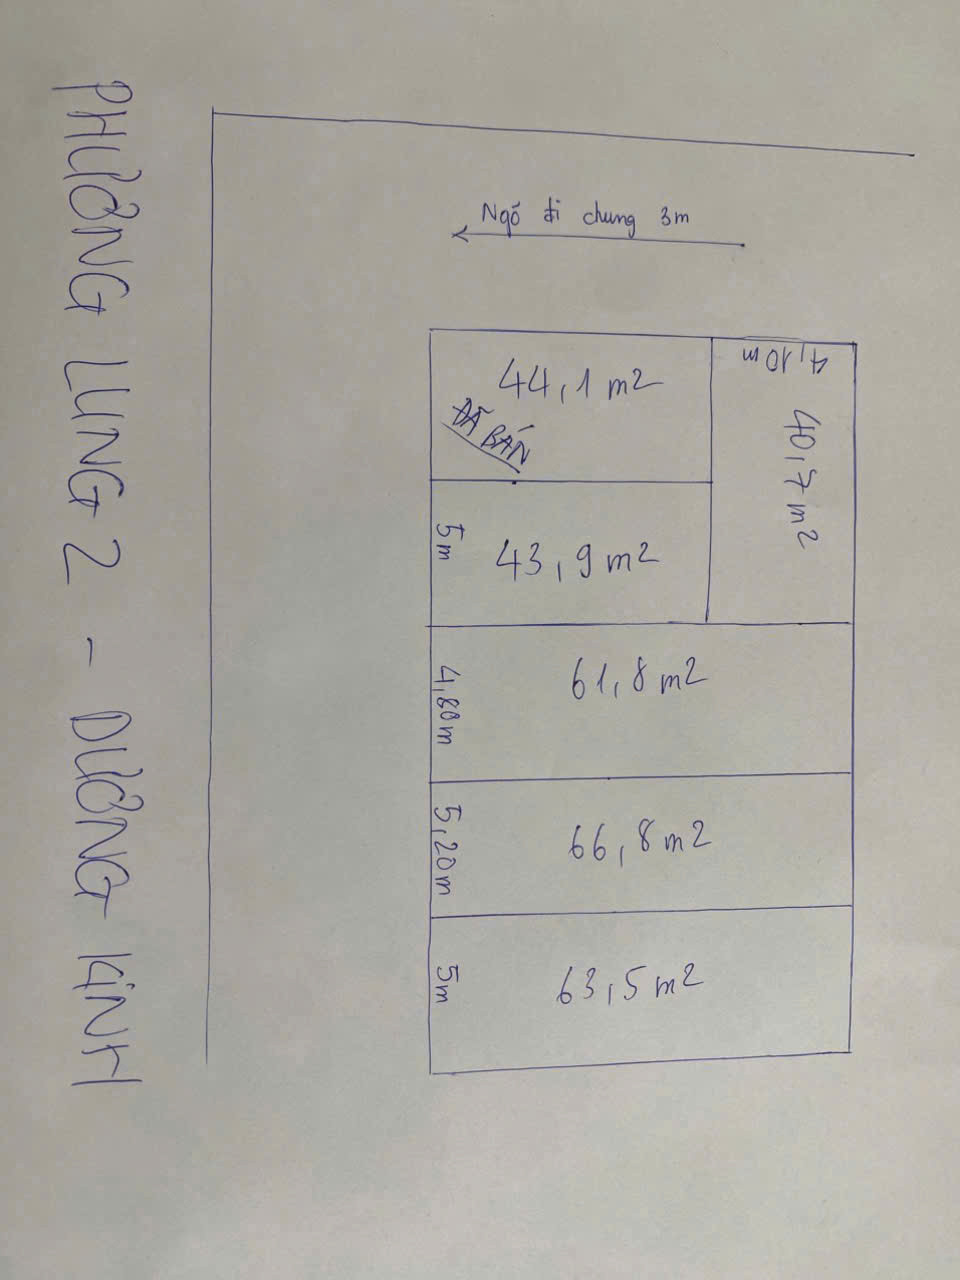 PHƯƠNG LUNG 2 - DƯƠNG KINH
Ngõ đi chung 3m
44,1 m2
ĐÃ BÁN
4,10 m
40,7 m2
5m
43,9 m2
4,80m
61,8 m2
5,20m
66,8 m2
5m
63,5 m2